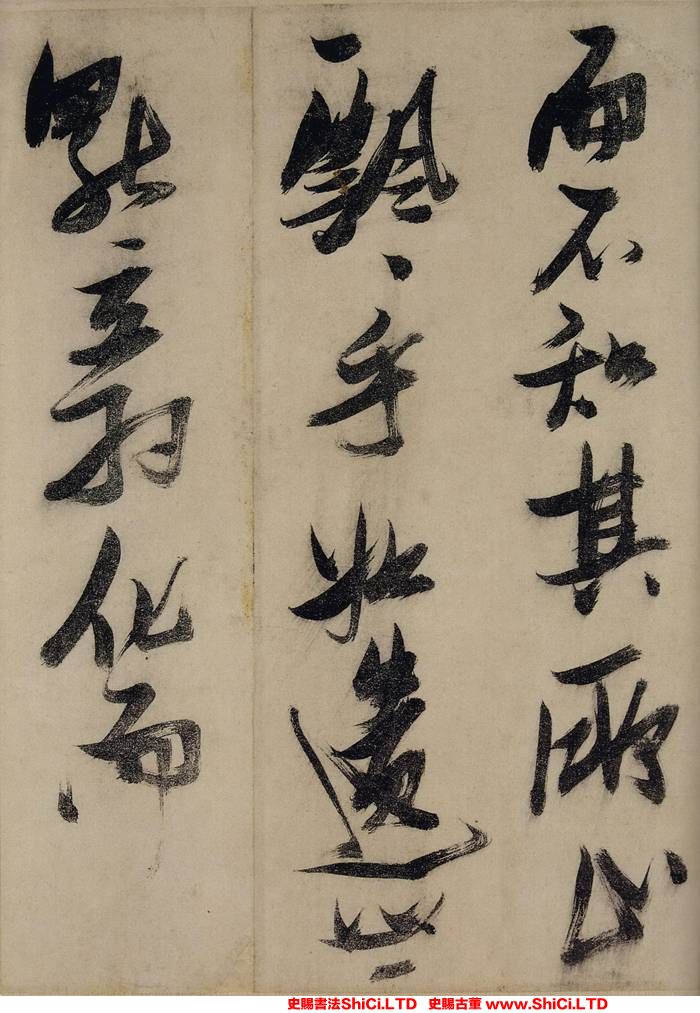 而不知其所止
飄〻乎如遺世
獨立羽化而
史賜書法ShiCi.LTD 史賜古董 www.ShiCi.LTD